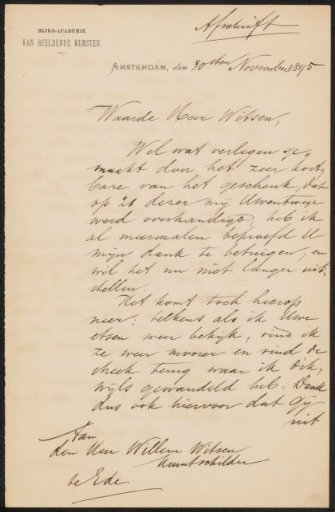 Afschrift
RIJKS-ACADEMIE
VAN BEELDENDE KUNSTEN.
AMSTERDAM, den 30sten November 1895
Waarde Heer Witsen,
Wel wat verlegen ge,
maakt door het zeer kost,
bare van het geschenk, dat
op 21 dezer mij Uwentwege
werd overhandigd, heb ik
al meermalen beproefd U
mijn dank te betuigen, en
wil het nu niet langer uit
stellen.
Het komt toch hierop
neer: telkens als ik Uwe
etsen weer bekijk, vind ik
ze weer mooier en vind de
streek terug waar ik dik,
wijls gewandeld heb. Dank
dus ook hiervoor dat Gij
uit
Aan
den Heer Willem Witsen
Kunstschilder
te Ede